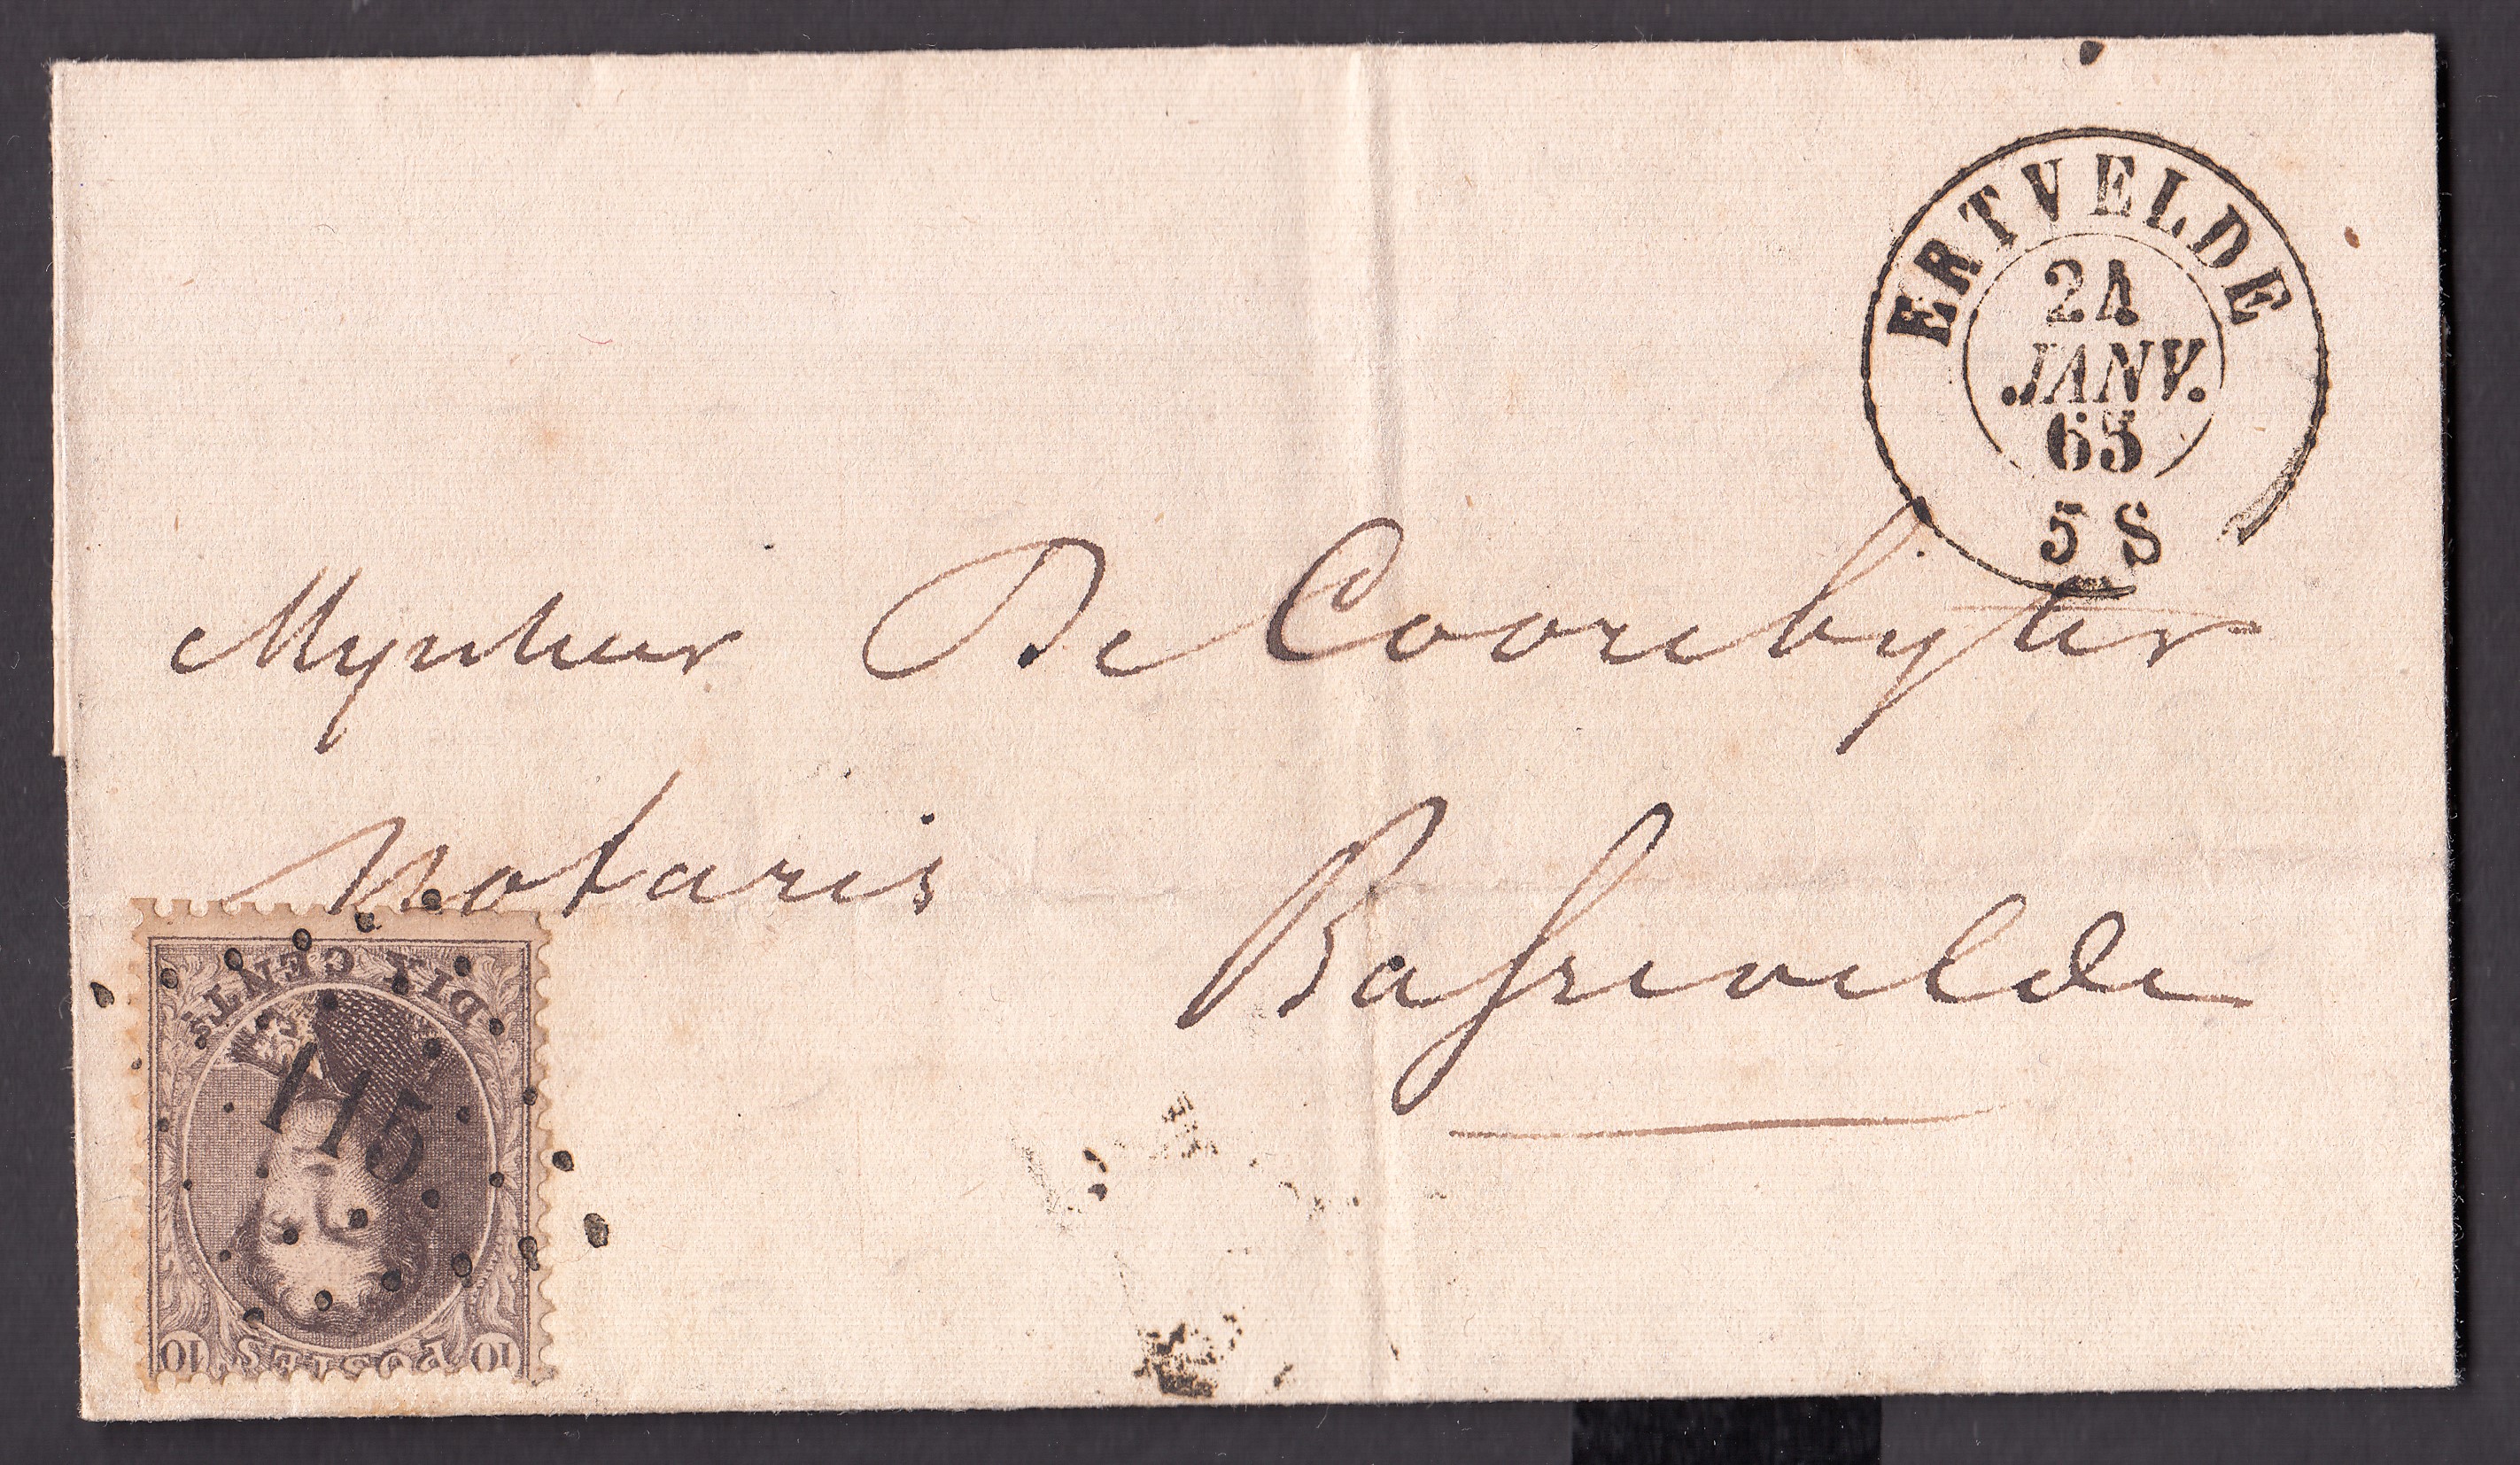 ERTVELDE
24
JANV.
65
5 S
Mynheer De Coorebyter
Notaris
Bassevelde
DIX CENTS
115
10 POSTES 10